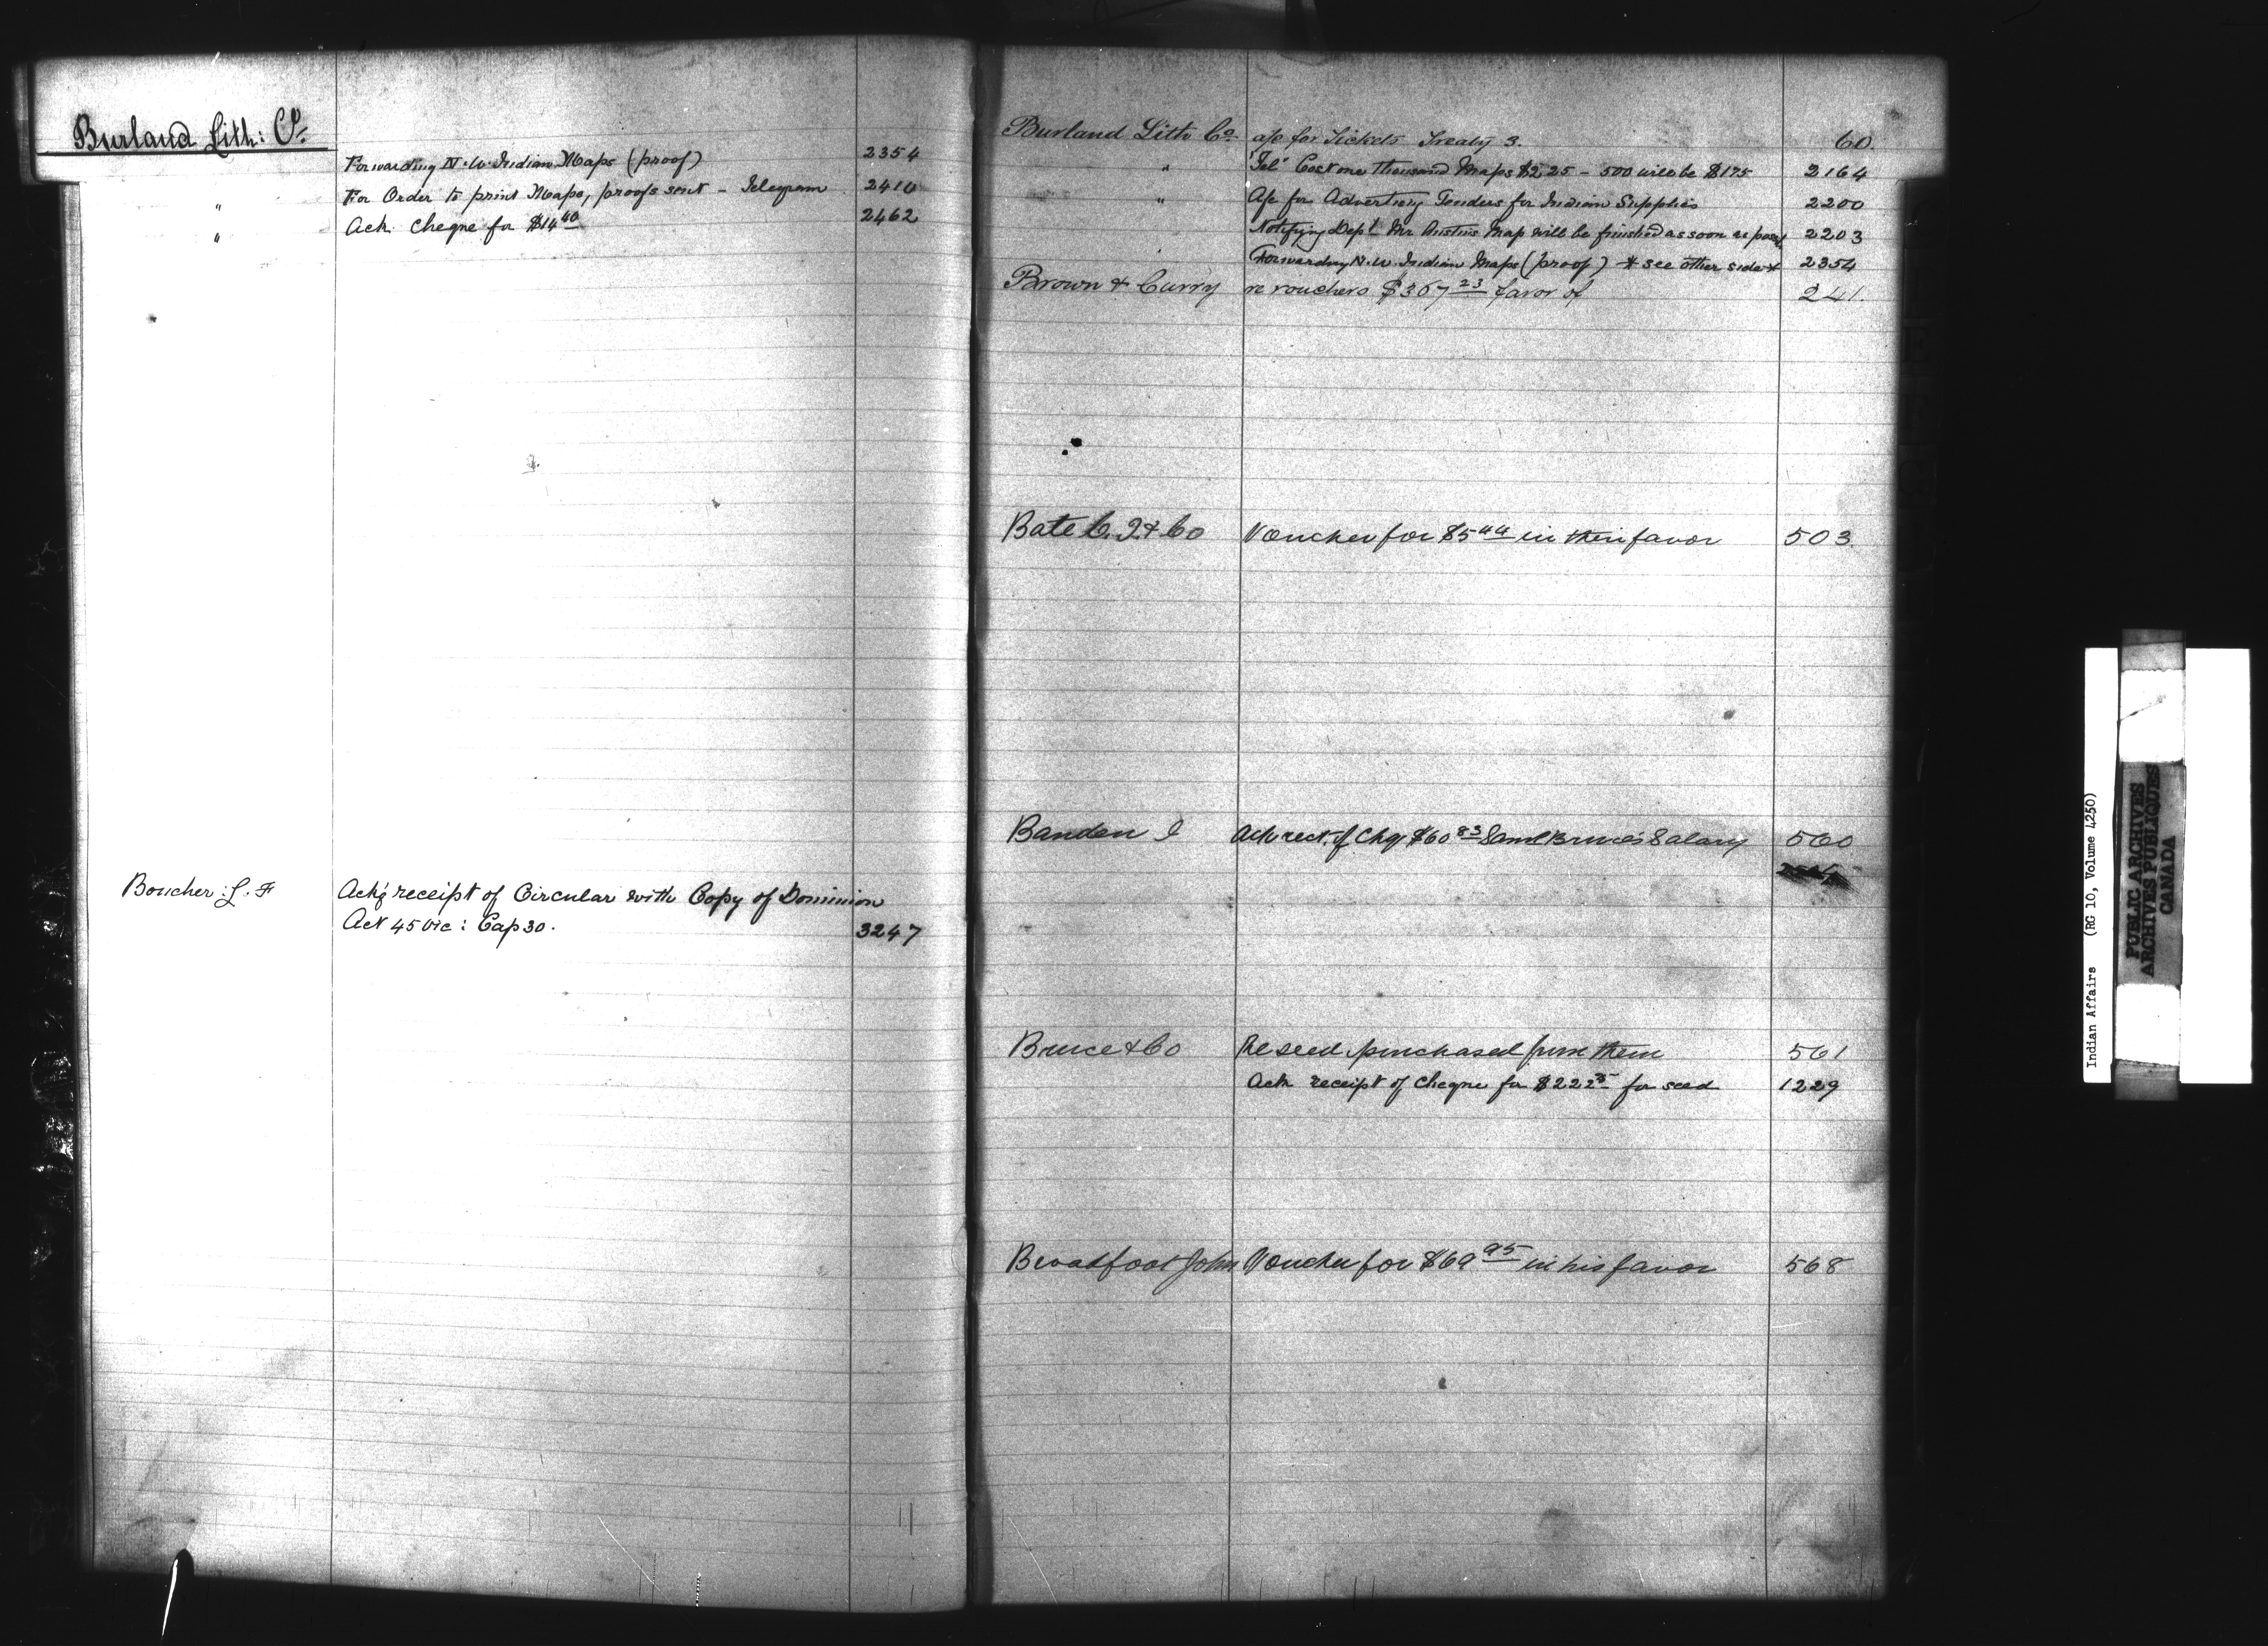 Burland Lith: Co.
Forwarding N.W. Indian Maps (proof) 2354
" For Order to print Maps, proofs sent - Telegram 2410
" Ack. cheque for $14 40 2462
Boucher L. F Ackg receipt of Circular with Copy of Dominion
Act 45 Vic: Cap 30. 3247
Burland Lith Co. a/c for Tickets Treaty 3. 60.
" "Tel" Cost one thousand Maps $225 - 500 will be $175 2164
" A/c for Advertising Tenders for Indian Supplies 2200
Notifying Dept Mr Austin's Map will be finished as soon as 2203
Forwarding N.W. Indian Maps (proof) * see other side * 2354
Brown & Curry re vouchers $367 23 favor of 241.
Bate C. & Co Voucher for $5 44 in their favor 503
Ack rect. of Chq $60 83 Saml Bruce's Salary 560
Bruce & Co Re seed purchased from them 561
Ack receipt of cheque for $222 for seed 1229
Broadfoot John Voucher for $69 95 in his favor 568
Indian Affairs (RG 10, Volume 4250)
PUBLIC ARCHIVES
ARCHIVES PUBLIQUES
CANADA